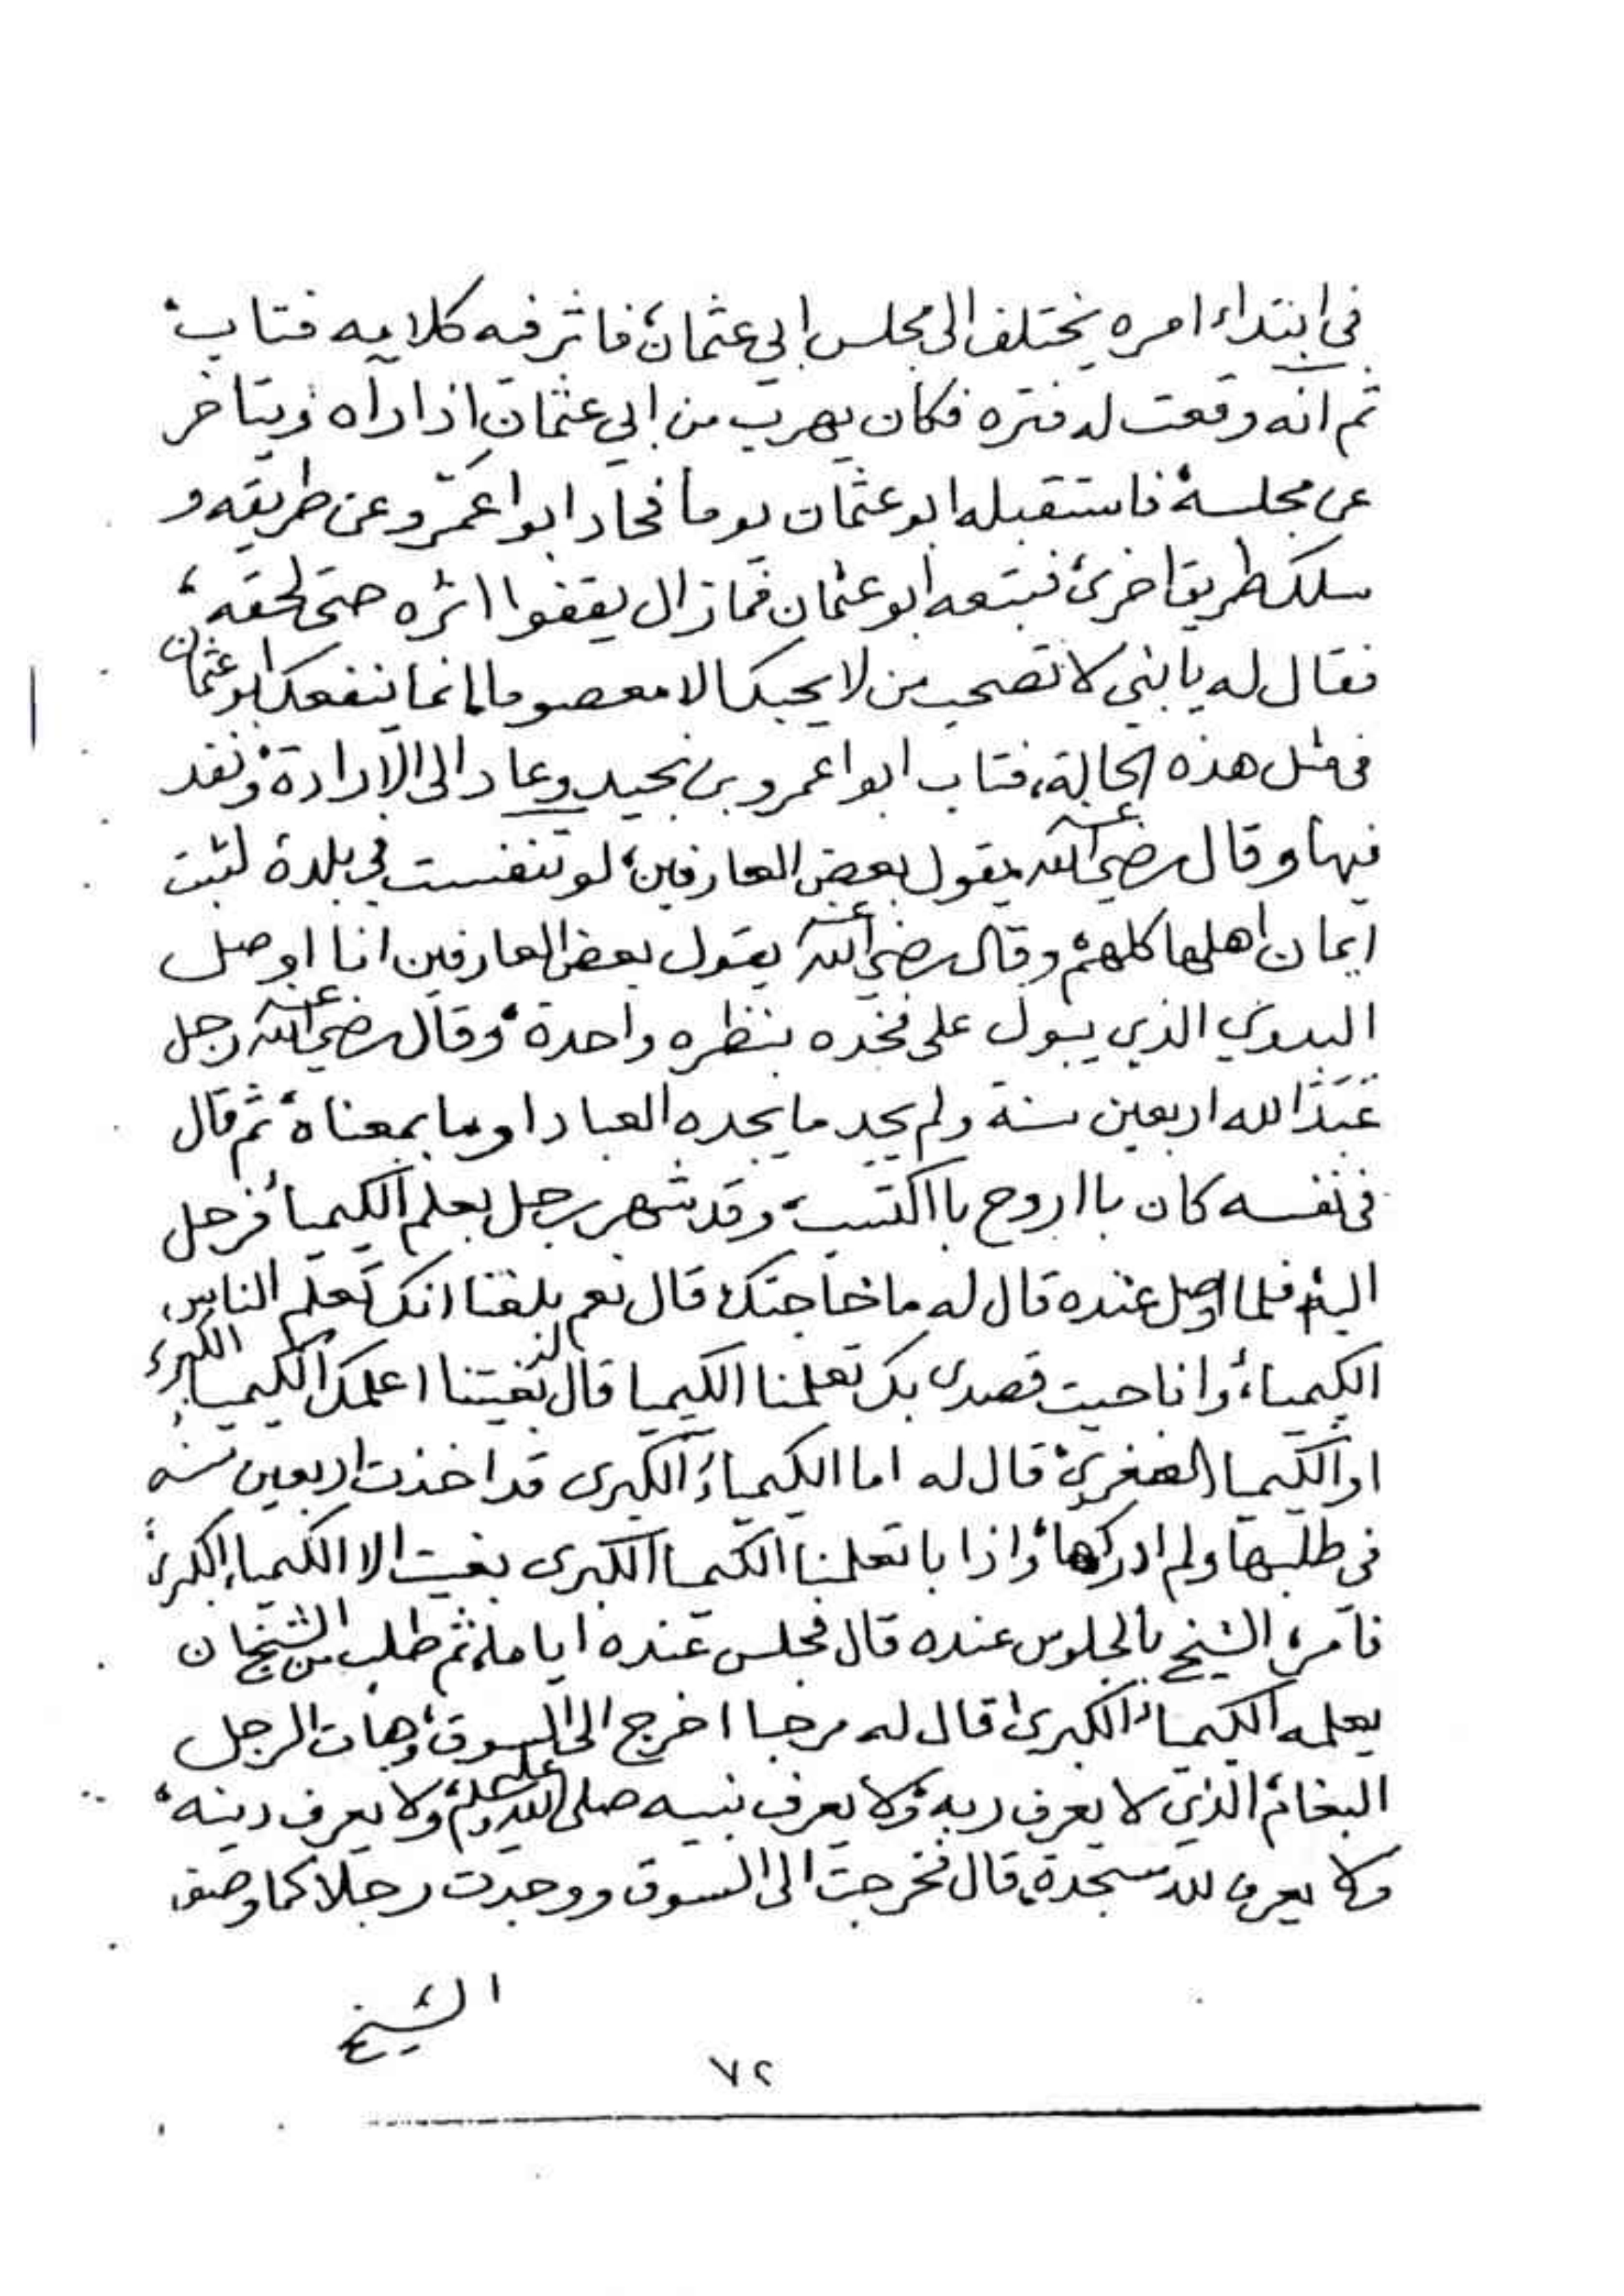 في ابتداء امره يختلف الى مجلس ابي عثمان، فاثر فيه كلامه فتاب،
ثم انه وقعت له فتره فكان يهرب من ابي عثمان اذا رآه ويتاخر
عن مجلسه، فاستقبله ابو عثمان يوما فحاد ابوا عمرو عن طريقه و
سلك طريقا اخرى، فتبعه ابو عثمان فما زال يقفوا اثره حتى لحقه،
فقال له يا بني لا تصحب من لا يحبك الا معصوما انما ينفعك ابو عثمان
في مثل هذه الحالة، فتاب ابوا عمرو بن نجيد وعاد الى الارادة ونفد
فيها وقال رضي الله عنه يقول بعض العارفين، لو تنفست في بلدة لثبت
ايمان اهلها كلهم، وقال رضي الله عنه يقول بعض العارفين انا اوصل
البدوي الذي يبول على فخده بنظره واحدة، وقال رضي الله عنه رجل
عَبَدَ الله اربعين سنة ولم يجد ما يجده العباد او ما بمعناه، ثم قال
في نفسه كان با اروح با اكتسب، وقد شهر رجل بعلم الكيمياء فرحل
اليه، فلما وصل عنده قال له ما حاجتك، قال نعم بلغنا انك تعلم الناس
الكيمياء، وانا جيت قصدي بك تعلمنا الكيميا قال له بغيتنا اعلمك الكيمياء الكبرى
او الكيميا الصغرى، قال له اما الكيمياء الكبرى قد اخذت اربعين سنه
في طلبها ولم ادركها، واذا با تعلمنا الكيميا الكبرى بغيت الا الكيمياء الكبرى،
فامره الشيخ بالجلوس عنده قال فجلس عنده اياما، ثم طلب من الشيخ ان
يعلمه الكيمياء الكبرى، قال له مرحبا اخرج الى السوق، وهات الرجل
البغام، الذي لا يعرف ربه، ولا يعرف نبيه صلى الله عليه وسلم، ولا يعرف دينه،
ولا يعرف لله سجدة، قال فخرجت الى السوق ووجدت رجلا كما وصف
الشيخ
٧٢